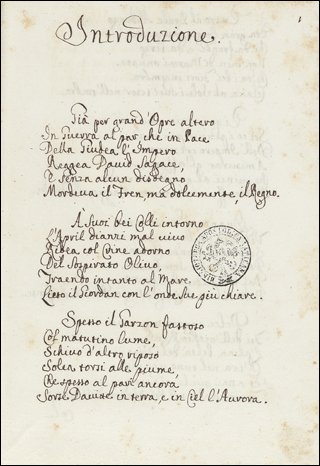 1
Introduzione.
Già per grand'Opre altero
In Guerra al par, che in Pace
Della Giudea l'Impero
Reggea David sagace,
E senza alcun disdegno
Mordeva il Fren, mà dolcemente, il Regno.
A Suoi bei Colli intorno
L'April dianzi mal vivo
Ridea col Crine adorno
Del sospirato Olivo,
Traendo intanto al Mare
Lieto il Giordan con l'onde Sue più chiare.
Spesso il Garzon fastoso
Col matutino lume,
Schivo d'altro riposo
Solea torsi alle piume,
Che spesso al pari ancora
Sorse Davide in terra, e in Ciel l'Aurora.